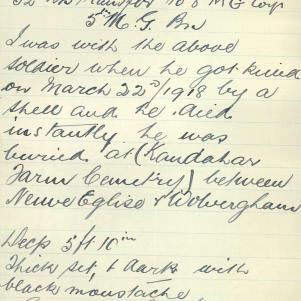 5th M. G. Bn
I was with the above
soldier when he got killed
on March 22nd/1918 by a
shell and he died
instantly he was
buried at (Kandahar
Farm Cemetry) between
Neuve Eglise & Wolverghem
5 ft 10 in
Thick set, & dark with
black moustache